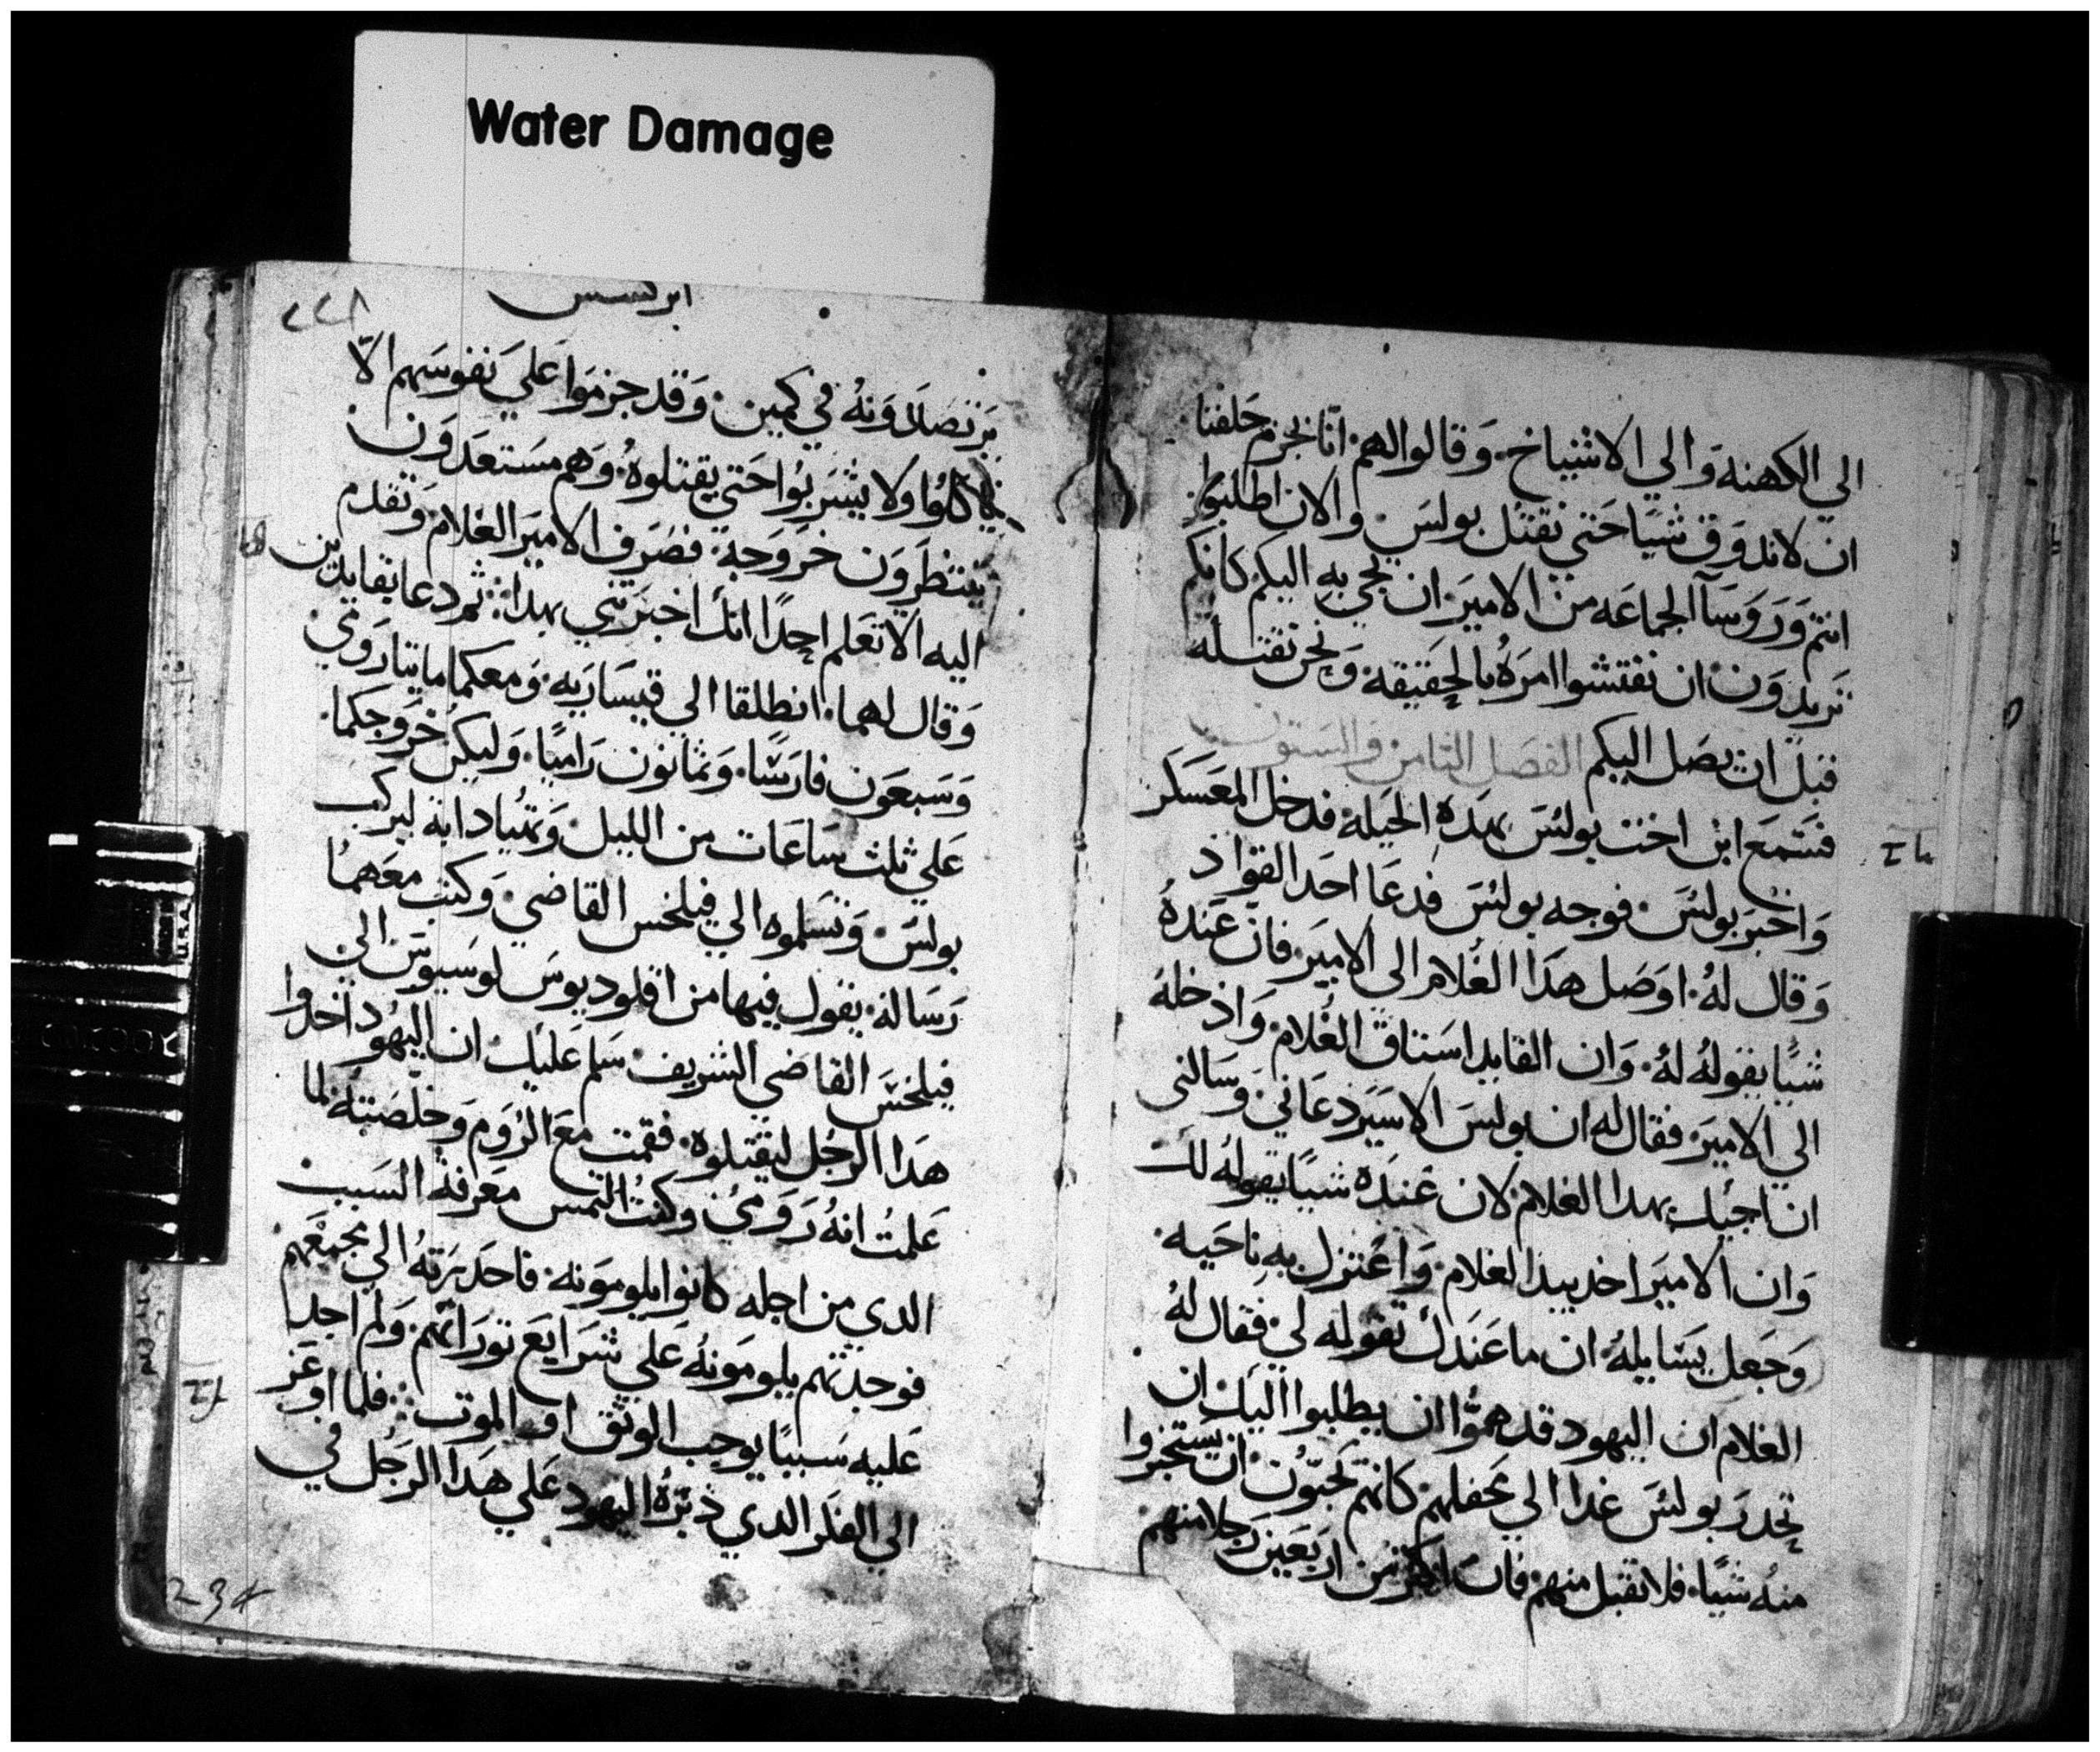 Water Damage
الي الكهنه والي الاشياخ. وقالوا لهم. انّا بجزم حلفنا
ان لاندوق شيًا حتي نقتل بولس. والان اطلبوا
انتم وروسآ الجماعه من الامير. ان يجي به اليكم كانكم
تريدون ان تفتشوا امره بالحقيقة. ونحن نقتله
قبل ان يصل اليكم الفصل الثامن والستون
فسمع ابن اخت بولس بهده الحيله فدخل المعسكر
واخبر بولس. فوجه بولس فدعا احد القواد
وقال له. اوصل هدا الغلام الى الامير. فان عنده
شيًا يقوله له. وان القايد استاق الغلام. وادخله
الي الامير. فقال له ان بولس الاسير دعاني. وسالني
ان اجيك بهدا الغلام لان عنده شيًا يقوله لك
وان الامير اخد بيد الغلام. واعتزل به ناحيه.
وجعل يسايله. ان ما عندك تقوله لي. فقال له
الغلام ان اليهود قد همّوا ان يطلبوا اليك ان
تحدر بولس غدا الي محفلهم. كانهم يحبّون ان يستخبروا
منه شيًا. فلا تقبل منهم. فان اكثر من اربعين رجلا منهم
ابركسيس
٢٢٨
يترصدونه في كمين. وقد جزموا علي نفوسهم الّا
ياكلوا ولا يشربوا حتي يقتلوه. وهم مستعدون
ينتظرون خروجه. فصرف الامير الغلام. وتقدم
اليه الّا تعلم احدًا انك اخبرتني بهدا. ثم دعا بقايدين
وقال لهما. انطلقا الي قيساريه. ومعكما مايتا روّمي
وسبعون فارسًا. وثمانون راميًا. وليكن خروجكما.
علي ثلث ساعات من الليل. وتهيا دابة ليركب
بولس. وتسلموه الي فيلخس القاضي. وكتب معهما
رساله. يقول فيها من اقلوديوس لوسيوس الي
فيلخس القاضي الشريف. سلم عليك. ان اليهود اخدوا
هدا الرجل ليقتلوه. فقمت مع الروم وخلّصته. لما
علمت انه رومي. وكنت التمس معرفة السبب
الدي من اجله كانوا يلومونه. فاحدرته الي مجمعهم
فوجدتهم يلومونه علي شرايع توراتهم. ولم اجد
عليه سببًا يوجب الوثق او الموت. فلما اوعز
الي الفكر الدي دبّره اليهود علي هدا الرجل في
234